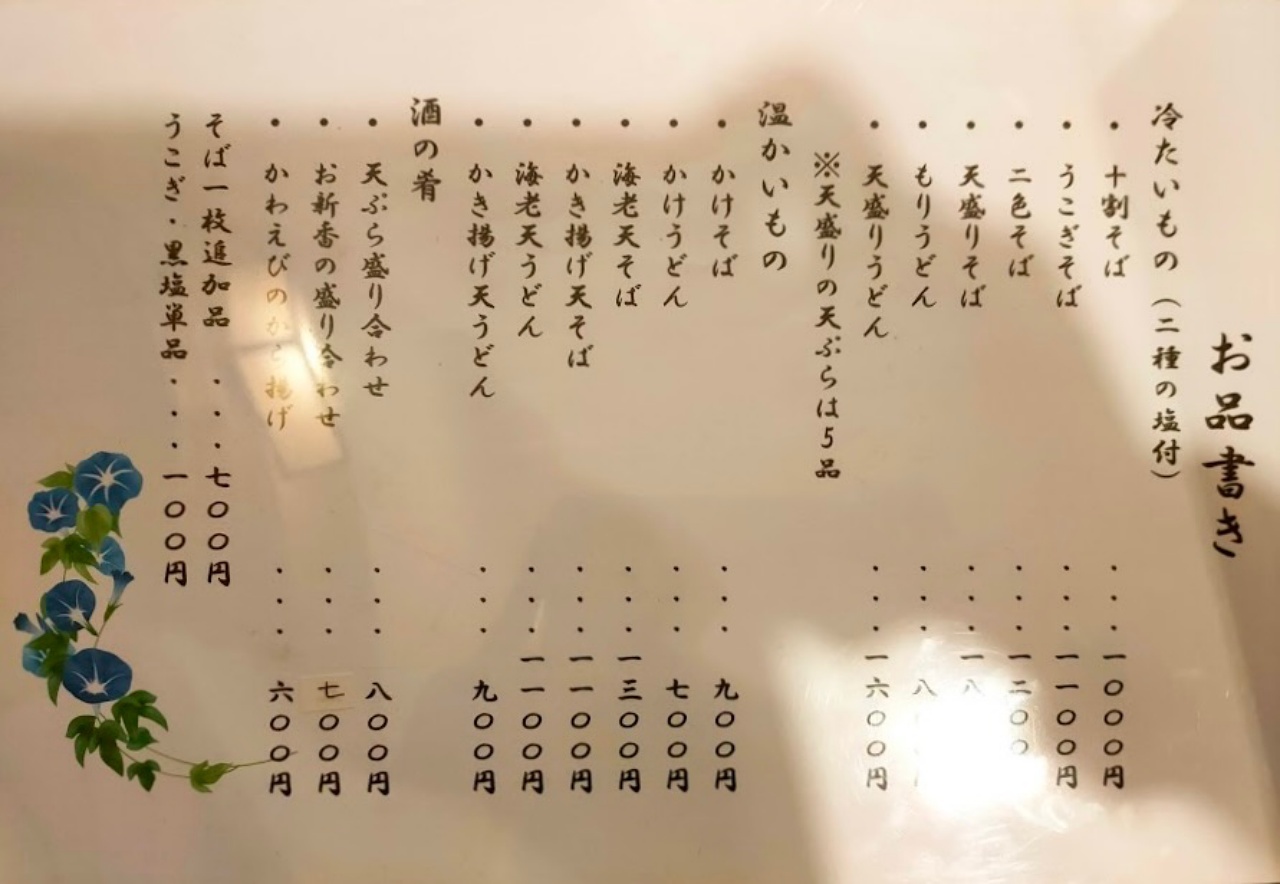 お品書き
冷たいもの（二種の塩付）
・十割そば・・・一〇〇〇円
・うこぎそば・・・一一〇〇円
・二色そば・・・一二〇〇
・天盛りそば・・・一八
・もりうどん・・・八
・天盛りうどん・・・一六〇〇円
※天盛りの天ぷらは5品
温かいもの
・かけそば・・・九〇〇円
・かけうどん・・・七〇〇円
・海老天そば・・・一三〇〇円
・かき揚げ天そば・・・一一〇〇円
・海老天うどん・・・一一〇〇円
・かき揚げ天うどん・・・九〇〇円
酒の肴
・天ぷら盛り合わせ・・・八〇〇円
・お新香の盛り合わせ・・・七〇〇円
・かわえびのから揚げ・・・六〇〇円
そば一枚追加品・・・七〇〇円
うこぎ・黒塩単品・・・一〇〇円